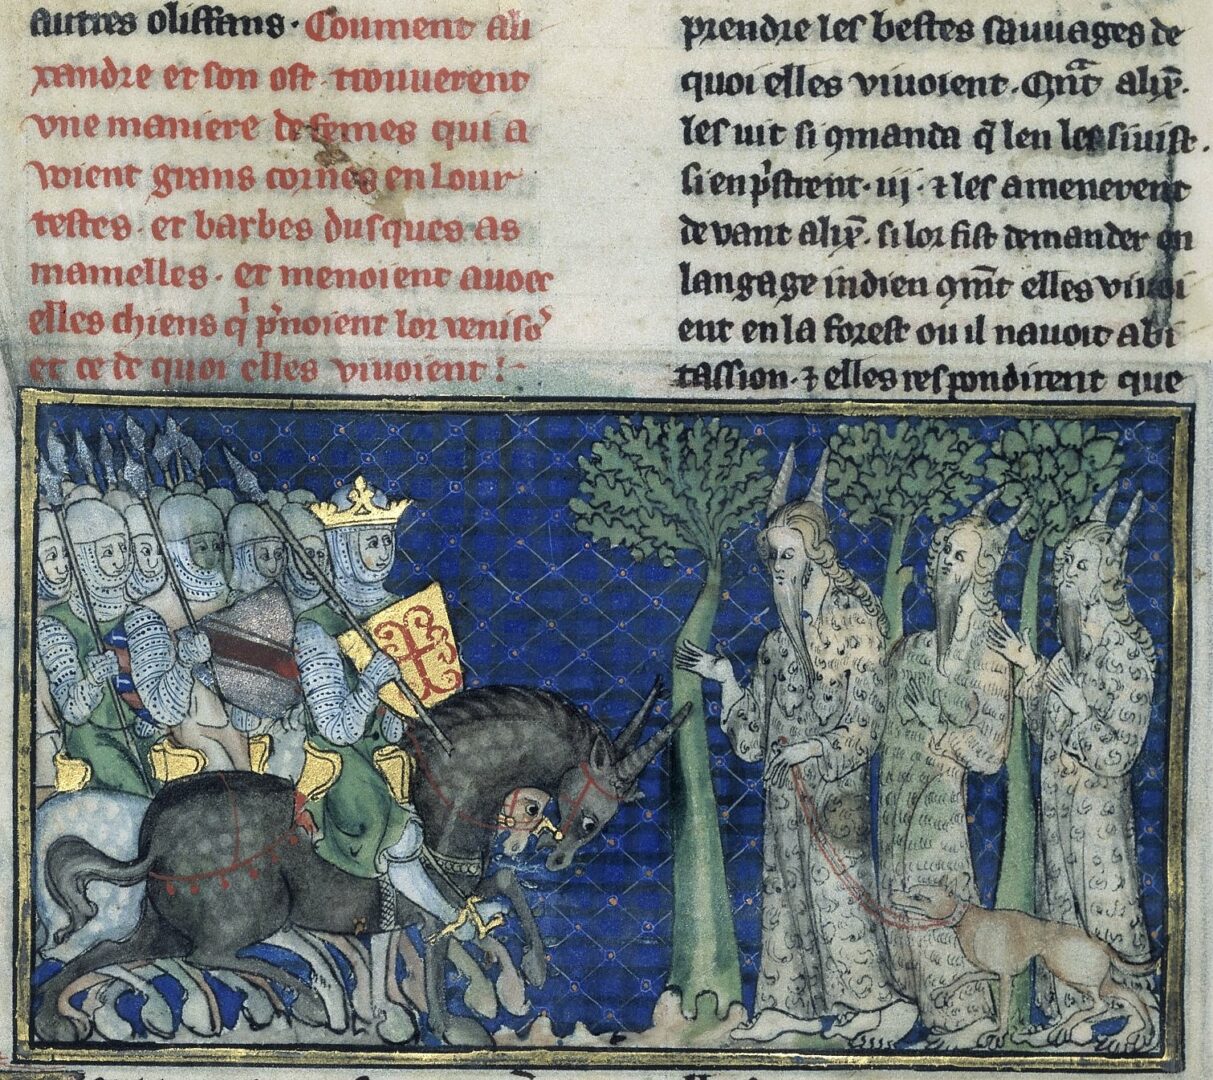 autres oliffans. Coument ali
xandre et son ost trouuerent
vne maniere de femes qui a
uoient grans cornes en lour
testes. et barbes dusques as
mamelles. et menoient auoec
elles chiens q̓ p̓noient lor veniso᷒
et ce de quoi elles viuoient!
prendre les bestes sauuages de
quoi elles viuoient. Qn̄t alix̄.
les uit si 9manda q̄ len les siuist.
si en p̓strent .iij. ⁊ les amenerent
deuant alix̄. si lor fist demander en
langage indien 9m̄t elles viuoi
ent en la forest ou il nauoit abi
tassion. ⁊ elles respondirent que